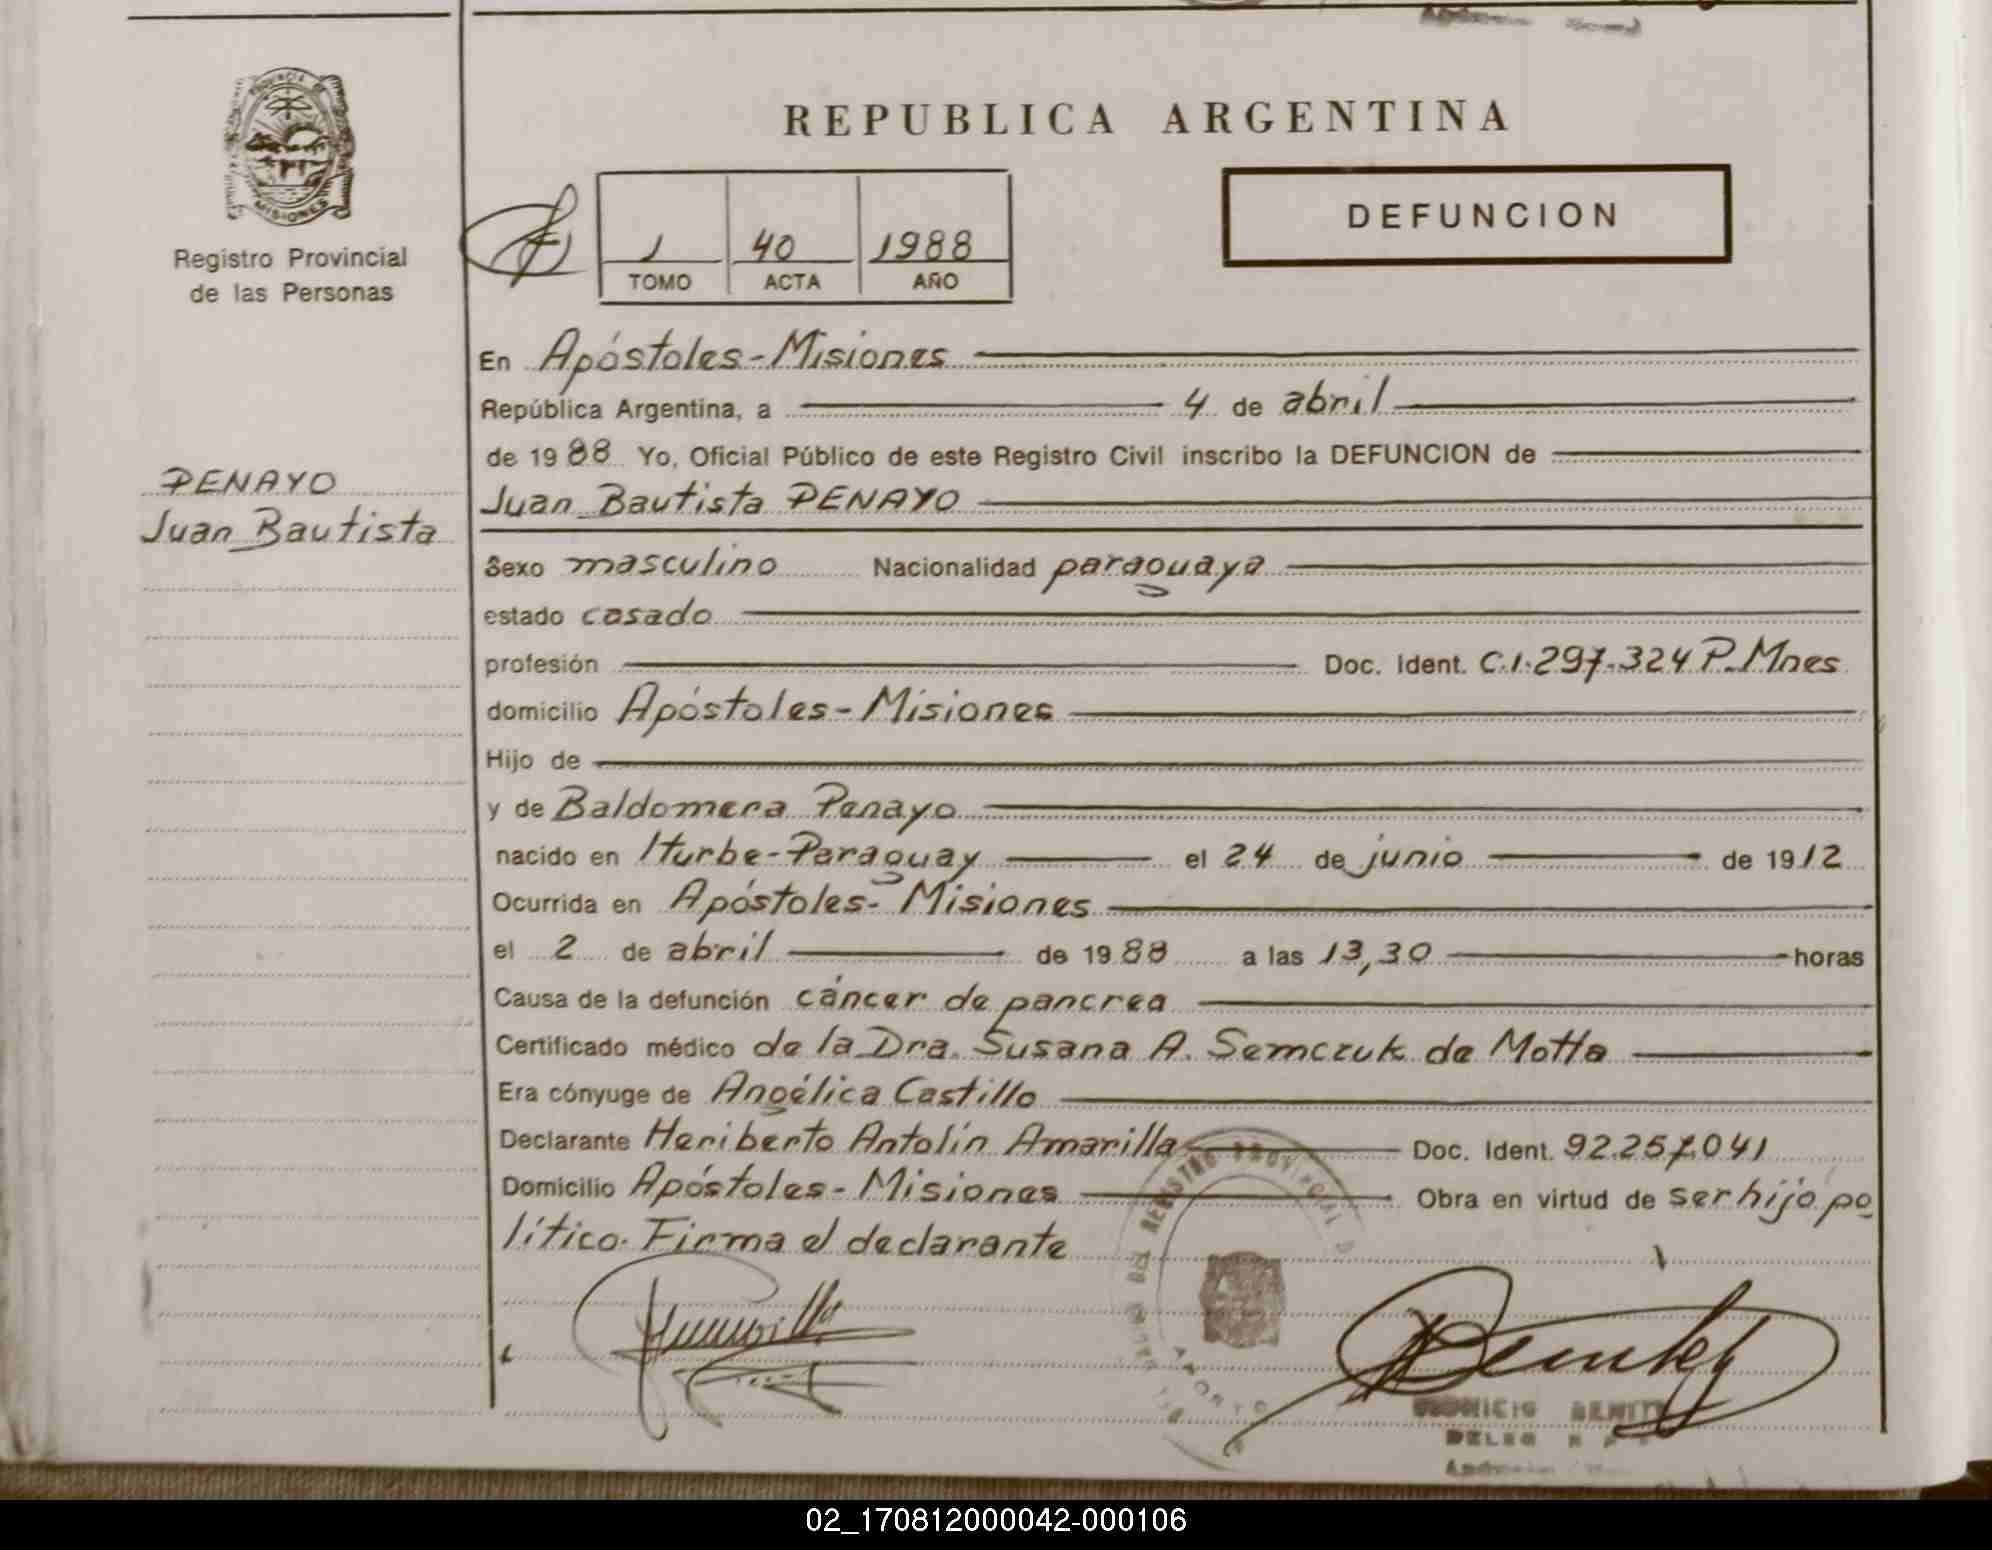 REPUBLICA ARGENTINA
PROVINCIA
MISIONES
Registro Provincial
de las Personas
1 40 1988
TOMO ACTA AÑO
DEFUNCION
PENAYO
Juan Bautista
En Apóstoles-Misiones
República Argentina, a 4 de abril
de 1988 Yo, Oficial Público de este Registro Civil inscribo la DEFUNCION de
Juan Bautista PENAYO
Sexo masculino Nacionalidad paraguaya
estado casado
profesión Doc. Ident. C.I. 297.324 P. Mnes
domicilio Apóstoles-Misiones
Hijo de
y de Baldomera Penayo
nacido en Iturbe-Paraguay el 24 de junio de 1912
Ocurrida en Apóstoles-Misiones
el 2 de abril de 1988 a las 13,30 horas
Causa de la defunción cáncer de pancrea
Certificado médico de la Dra. Susana A. Semczuk de Motta
Era cónyuge de Angélica Castillo
Declarante Heriberto Antolín Amarilla Doc. Ident. 92.257.041
Domicilio Apóstoles-Misiones Obra en virtud de ser hijo po
lítico. Firma el declarante
REGISTRO PROVINCIAL D
02_170812000042-000106